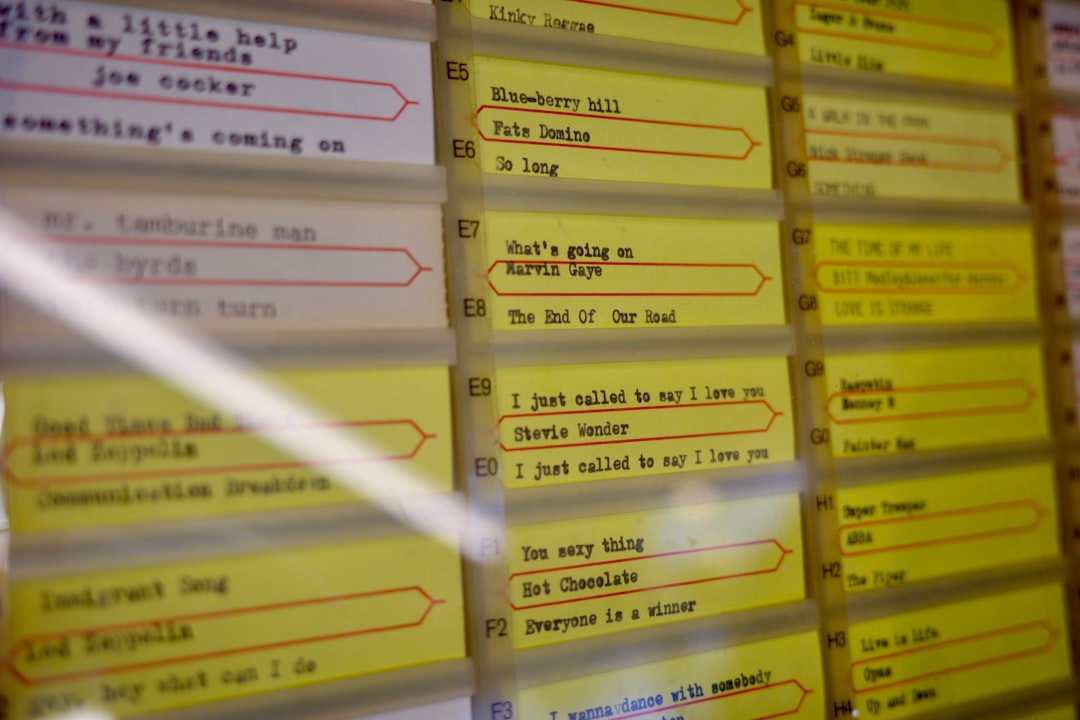 with a little help
from my friends
joe cocker
something's coming on
mr. tamburine man
byrds
turn
Good Times Bad
Led Zeppelin
Communication Breakdown
Immigrant Song
Led Zeppelin
hey what can I do
Kinky Reggae
E5
Blue-berry hill
Fats Domino
E6
So long
E7
What's going on
Marvin Gaye
E8
The End Of Our Road
E9
I just called to say I love you
Stevie Wonder
E0
I just called to say I love you
F1
You sexy thing
Hot Chocolate
F2
Everyone is a winner
F3
I wannavdance with somebody
G4
Little
G5
A WALK IN THE PARK
Nick Straker Band
G6
SOMETHING
G7
THE TIME OF MY LIFE
Bill Medley&Jennifer
G8
LOVE IS STRANGE
G9
Rasputin
Booney M
G0
Painter Man
H1
Super Trouper
ABBA
H2
The Piper
H3
Live is life
Opus
H4
Up and Down